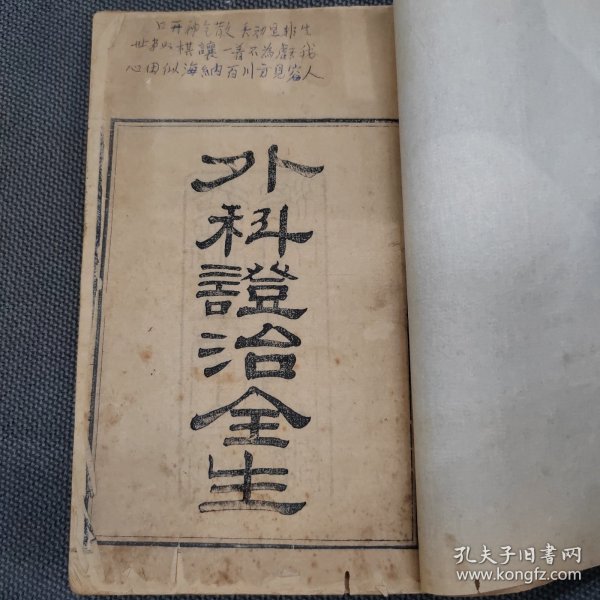 口开神气散 舌动是非生
世事如棋讓一着不為虧我
心田似海納百川方見容人
外科證治全生
孔夫子旧书网
www.kongfz.com